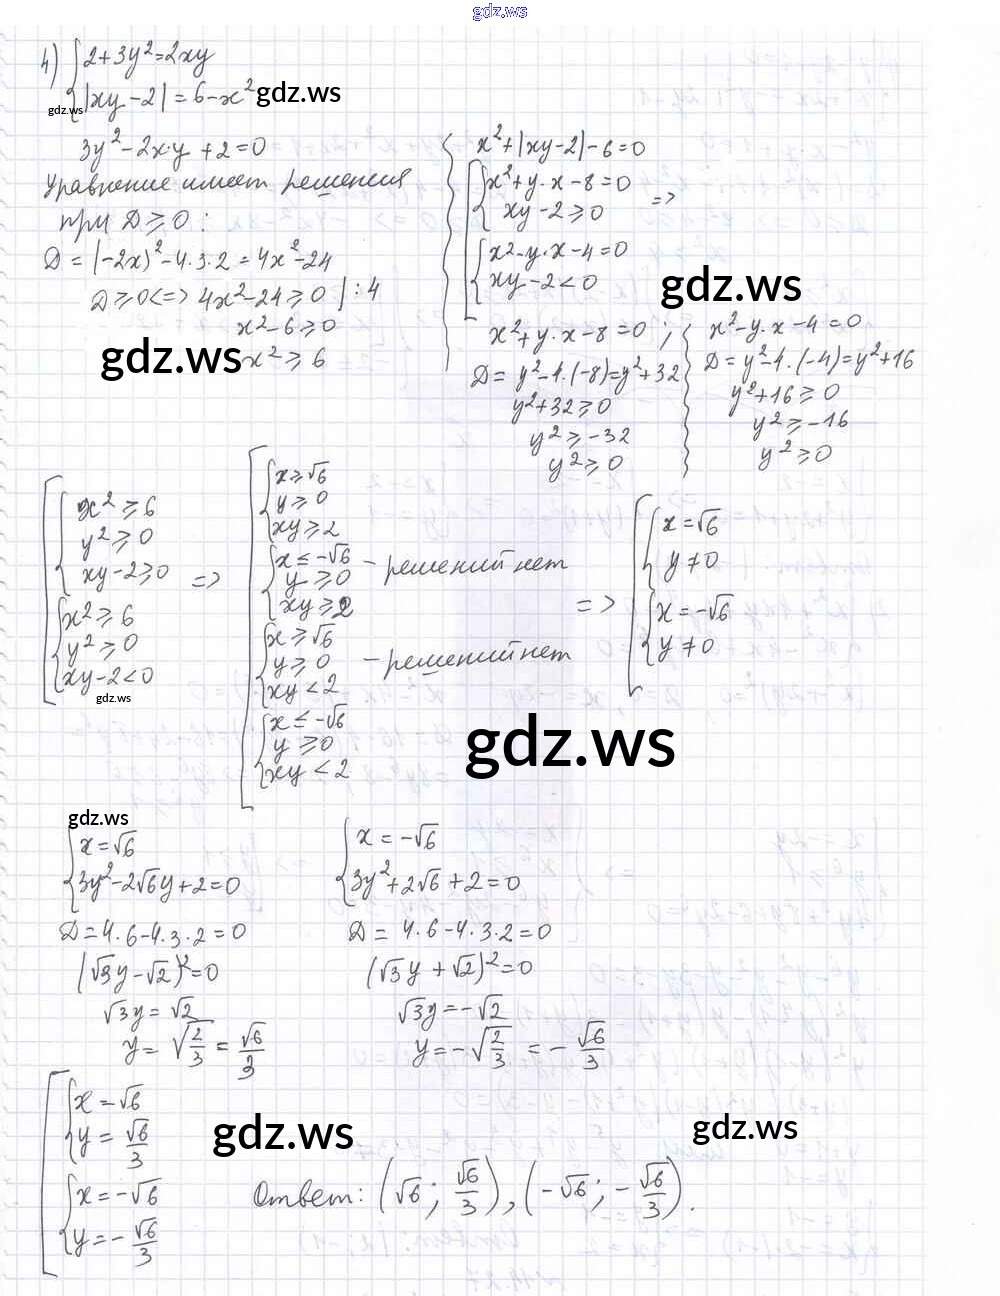 gdz.ws
4) { 2+3y²=2xy
|xy-2| = 6-x² gdz.ws
gdz.ws
3y²-2x·y+2=0
Уравнение имеет решения
при D≥0:
D=(-2x)²-4·3·2=4x²-24
D≥0<=> 4x²-24≥0 |:4
x²-6≥0
gdz.ws x²≥6
{ x²+|xy-2|-6=0
[ { x²+y·x-8=0
xy-2≥0 =>
{ x²-y·x-4=0
xy-2<0
gdz.ws
x²+y·x-8=0 ;
D=y²-4·(-8)=y²+32
y²+32≥0
y²≥-32
y²≥0
{ x²-y·x-4=0
D=y²-4·(-4)=y²+16
y²+16≥0
y²≥-16
y²≥0
[ { x²≥6
y²≥0
xy-2≥0
{ x²≥6
y²≥0
xy-2<0
gdz.ws
=>
[ { x≥√6
y≥0
xy≥2
{ x≤-√6 - решений нет
y≥0
xy≥2
{ x≥√6
y≥0 - решений нет
xy<2
{ x≤-√6
y≥0
xy<2
=>
[ { x=√6
y≠0
{ x=-√6
y≠0
gdz.ws
gdz.ws
{ x=√6
3y²-2√6y+2=0
D=4·6-4·3·2=0
(√3y-√2)²=0
√3y=√2
y=√(2/3)=√6/3
{ x=-√6
3y²+2√6+2=0
D=4·6-4·3·2=0
(√3y+√2)²=0
√3y=-√2
y=-√(2/3)=-√6/3
[ { x=√6
y=√6/3
{ x=-√6
y=-√6/3
gdz.ws
gdz.ws
Ответ: (√6; √6/3), (-√6; -√6/3).